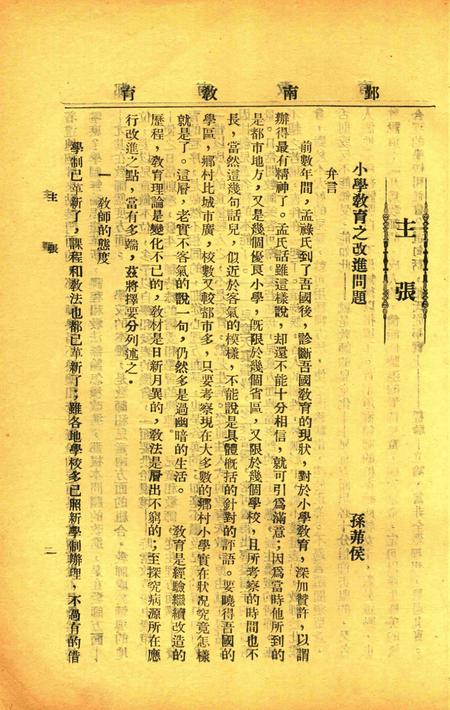 鄞南教育
主張
小學敎育之改進問題
孫茀侯
弁言
前數年間，孟祿氏到了吾國後，診斷吾國敎育的現狀，對於小學敎育，深加贊許，以謂
辦得最有精神了。孟氏話雖這樣說，却還不能十分相信，就可引爲滿意；因爲當時他所到的
是都市地方，又是幾個優良小學，旣限於幾個省區，又限於幾個學校，且所考察的時間也不
長，當然這幾句話兒，似近於客氣的模樣，不能說是具體槪括的針對的評語。要曉得吾國的
學區，鄉村比城市廣，校數又較都市多，只要考察現在大多數的鄉村小學實在狀況究竟怎樣
就是了。這層，老實不客氣的說一句，仍然多是過幽暗的生活。　敎育是經驗繼續改造的
歷程，敎育理論是變化不已的，敎材是日新月異的，敎法是層出不窮的；至探究病源所在應
行改進之點，當有多端，茲將擇要分列述之。
一　敎師的態度
學制已革新了，課程和敎法也都已革新了；雖各地學校多已照新學制辦理，不過有的借
主張
一